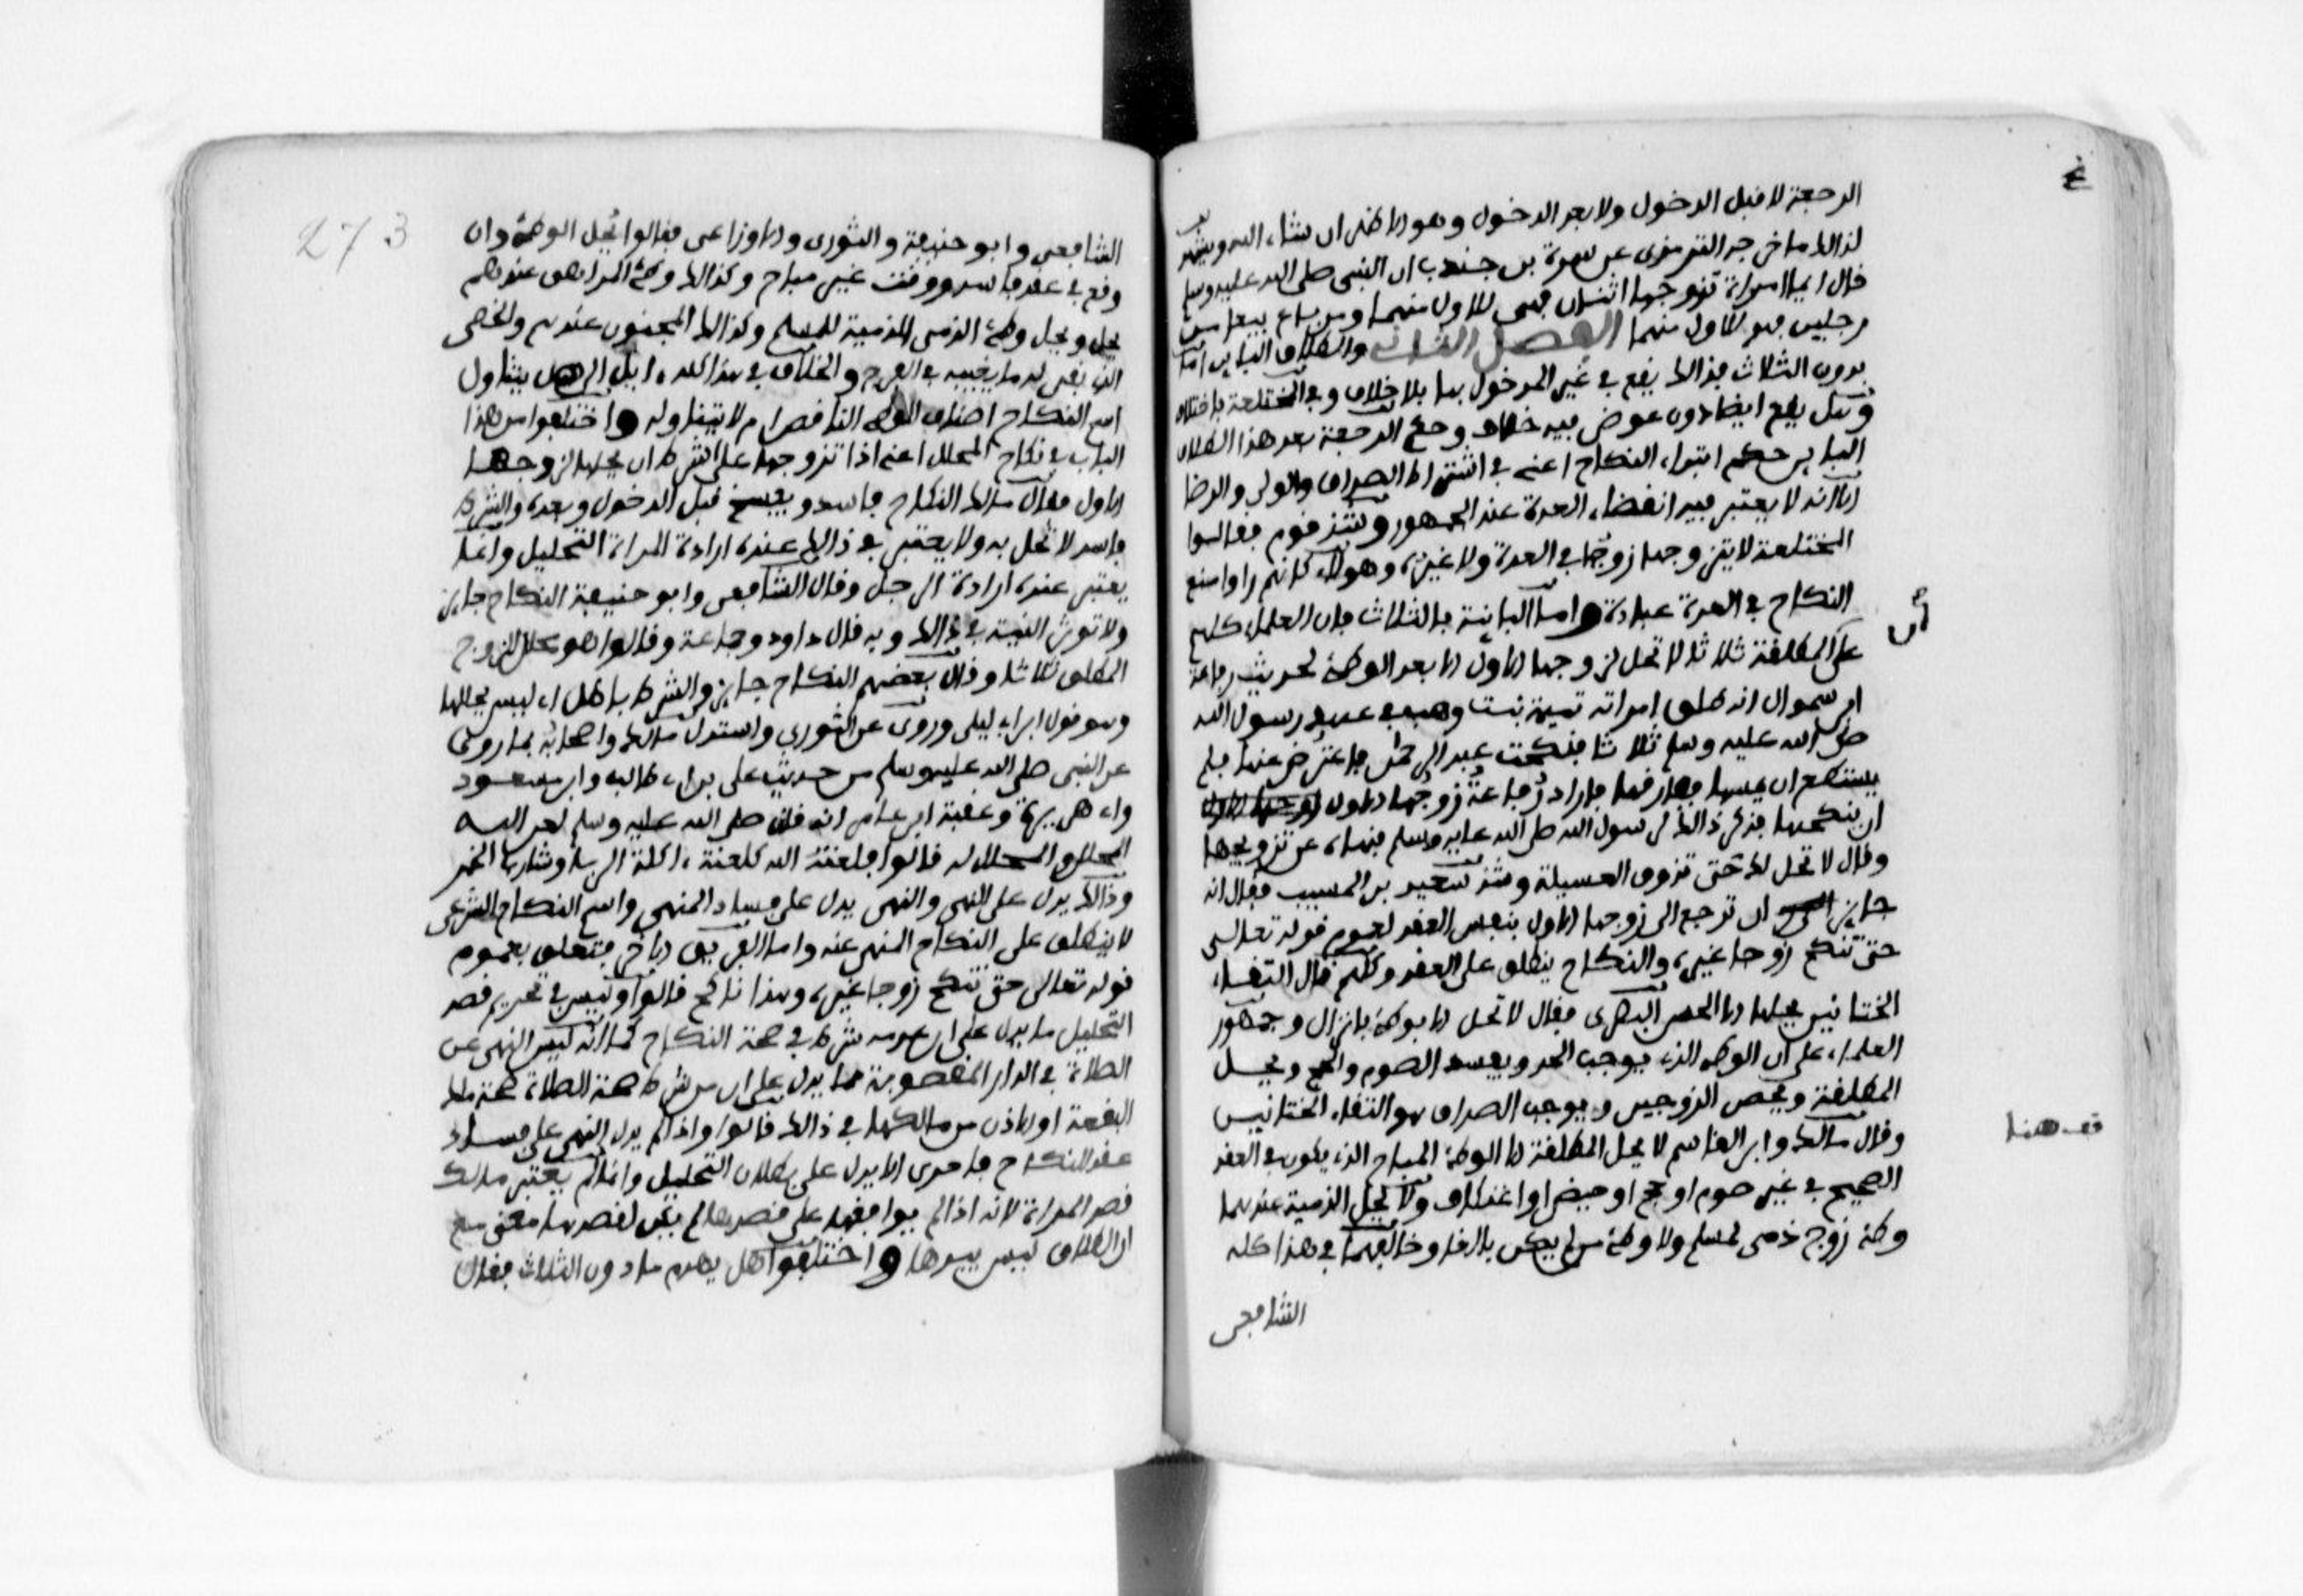 الرجعة لا قبل الدخول ولا بعد الدخول وهو الاظهر ان شاء الله ويشهد
لذالك ما خرجه الترمذى عن سمرة بن جندب ان النبى صلى الله عليه وسلم
قال ايما امراة تزوجها اثنان فهى للاول منهما ومن باع بيعا من
رجلين فهو للاول منهما الفصل الثانى والطلاق الباين اما
بدون الثلاث فذالك يقع في غير المدخول بها بلا خلاف وفي المختلعة باختلاف
وهل يقع ايضا دون عوض فيه خلاف وحكم الرجعة بعد هذا الطلاق
الباين حكم ابتداء النكاح اعنى في اشتراط الصداق والولي والرضا
الا انه لا يعتبر فيه انقضاء العدة عند الجمهور وشذ قوم فقالوا
المختلعة لا يتزوجها زوجها في العدة ولا غيره وهولاء كانهم راوا منع
النكاح في العدة عبادة واما الباينة بالثلاث فان العلماء كلهم
على ان المطلقة ثلاثا لا تحل لزوجها الاول الا بعد الوطئ لحديث رفاعة
ابن سموال انه طلق امراته تميمة بنت وهب في عهد رسول الله
صلى الله عليه وسلم ثلاثا فنكحت عبد الرحمن فاعترض عنها فلم
يستطع ان يمسها ففارقها فاراد رفاعة زوجها الاول
ان ينكحها فذكر ذالك لرسول الله صلى الله عليه وسلم فنهاه عن تزويجها
وقال لا تحل لك حتى تذوق العسيلة وشذ سعيد بن المسيب فقال انه
جايز ان ترجع الى زوجها الاول بنفس العقد لعموم قوله تعالى
حتى تنكح زوجا غيره والنكاح ينطلق على العقد وكلهم قال التقاء
الختانين يحلها الا الحسن البصرى فقال لا تحل الا بوطئ بانزال وجمهور
العلماء على ان الوطء الذي يوجب الحد ويفسد الصوم والحج ويحل
المطلقة ويحصن الزوجين ويوجب الصداق هو التقاء الختانين
وقال مالك وابن القاسم لا يحل المطلقة الا الوطئ المباح الذي يكون في العقد
الصحيح في غير صوم او حج او حيض او اعتكاف ولا يحل الذمية عندهما
وطئ زوج ذمى لمسلم ولا وطئ من لم يكن بالغا وخالفهما في هذا كله
الشافعى
قف هنا
273
الشافعى وابو حنيفة والثورى والاوزاعى فقالوا يحل الوطئ وان
وقع في عقد فاسد ووقت غير مباح وكذالك وطئ المراهق عندهم
يحل ويحل وطئ الذمى الذمية للمسلم وكذالك المجنون عندهم والخصى
الذي بقى له ما يغيبه في الفرج والخلاف في هذا كله ايل الى هل يتناول
اسم النكاح اصناف الوطء الناقص ام لا يتناوله واختلفوا من هذا
الباب في نكاح المحلل اعنى اذا تزوجها على الشرط ان يحلها لزوجها
الاول فقال مالك النكاح فاسد ويفسخ قبل الدخول وبعده والشرط
فاسد لا تحل به ولا يعتبر في ذالك عنده ارادة المراة التحليل وانما
يعتبر عنده ارادة الرجل وقال الشافعى وابو حنيفة النكاح جايز
ولا توثر النية في ذالك وبه قال داود وجماعة وقالوا هو محلل للزوج
المطلق ثلاثا وقال بعضهم النكاح جايز والشرط باطل اي ليس يحللها
وهو قول ابن ابي ليلى وروى عن الثوري واستدل مالك واصحابه بما روى
عن النبى صلى الله عليه وسلم من حديث على بن ابي طالب وابن مسعود
وابي هريرة وعقبة ابن عامر انه قال صلى الله عليه وسلم لعن الله
المحلل والمحلل له قالوا فلعنته الله كلعنة اكلة الربا وشارب الخمر
وذالك يدل على النهى والنهى يدل على فساد المنهى واسم النكاح الشرعى
لا ينطلق على النكاح المنهى عنه واما الفريق الاخر فتعلق بعموم
قوله تعالى حتى تنكح زوجا غيره وهذا ناكح قالوا وليس في تحريم قصد
التحليل ما يدل على ان عدمه شرط في صحة النكاح كما انه ليس النهى عن
الصلاة في الدار المغصوبة مما يدل على ان من شرط صحة الصلاة صحة ملك
البقعة او الاذن من مالكها في ذالك قالوا واذا لم يدل النهى على فساد
عقد النكاح فاحرى الا يدل على بطلان التحليل وانما لم يعتبر مالك
قصد المراة لانه اذا لم يوافقها على قصدها لم يكن لقصدها معنى مع
ان الطلاق ليس بيدها واختلفوا هل يهدم ما دون الثلاث فقال